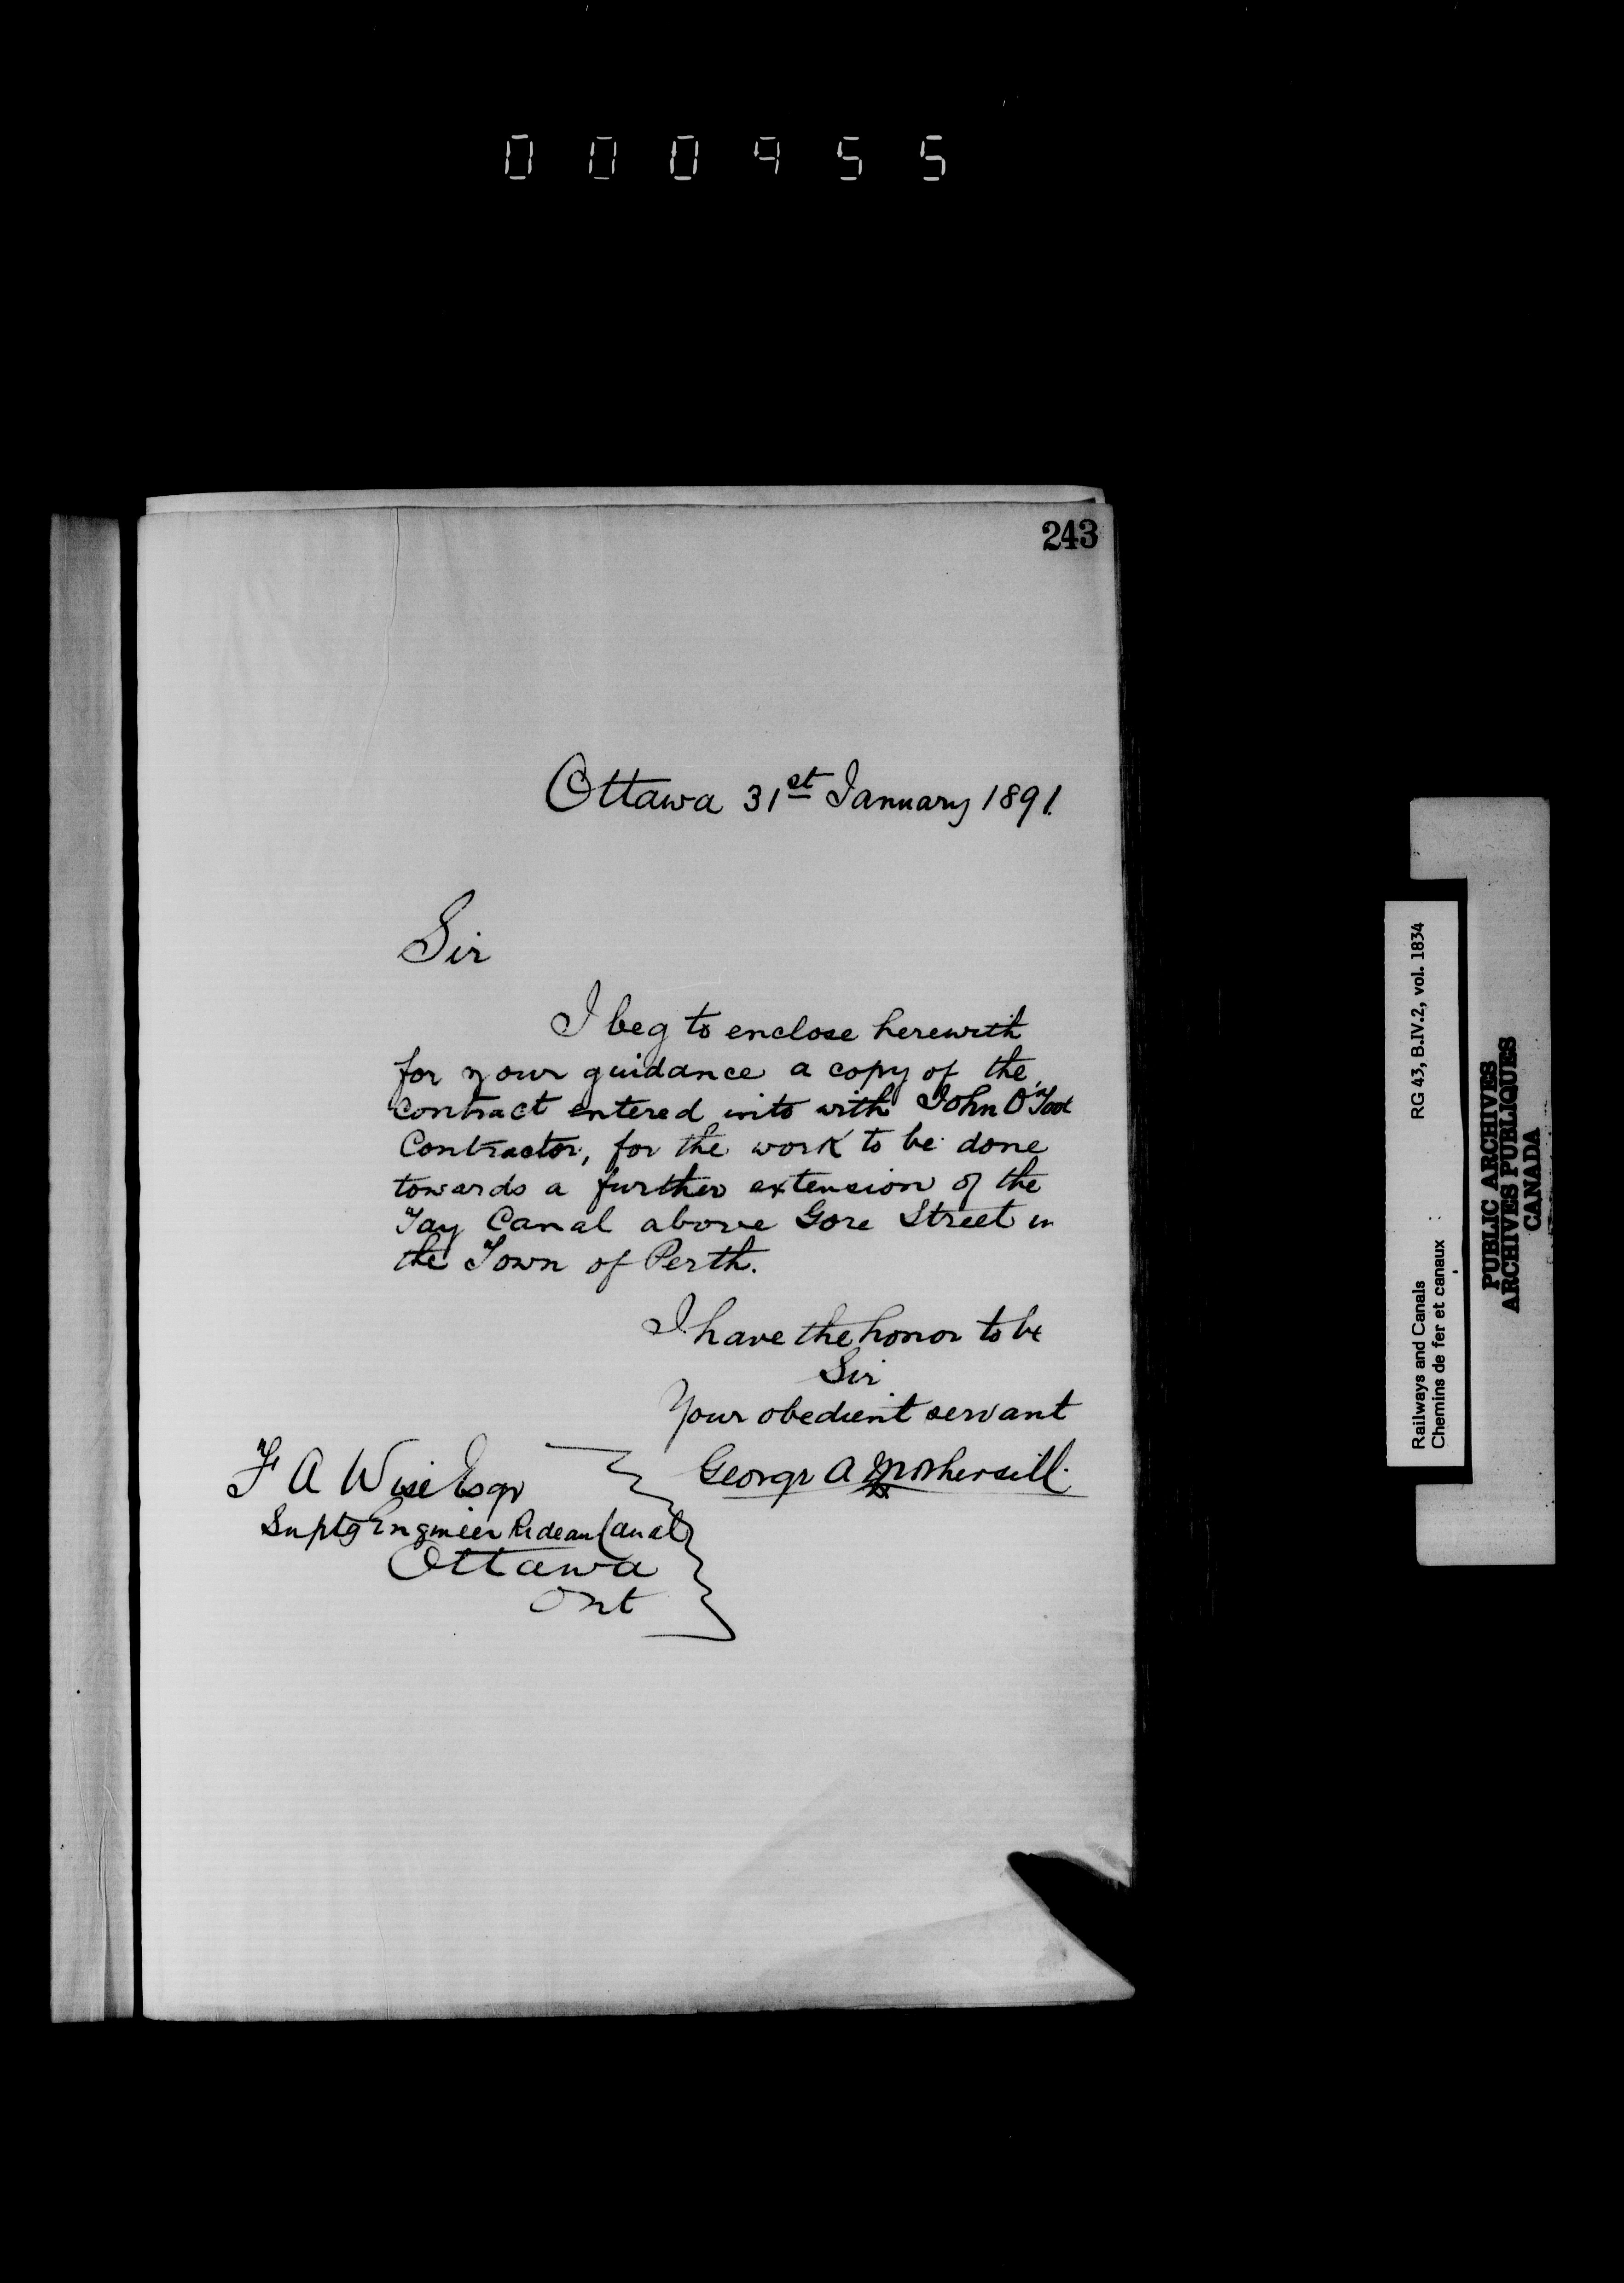 000955
243
Ottawa 31st January 1891.
Sir
I beg to enclose herewith
for your guidance a copy of the
Contract entered into with John O'Tool
Contractor, for the work to be done
towards a further extension of the
Tay Canal above Gore Street in
the Town of Perth.
I have the honor to be
Sir
Your obedient servant
George A Mothersill.
F A Wise Esqr
Suptg Engineer Rideau Canal
Ottawa
Ont
Railways and Canals RG 43, B.IV.2, vol. 1834
Chemins de fer et canaux :
PUBLIC ARCHIVES
ARCHIVES PUBLIQUES
CANADA